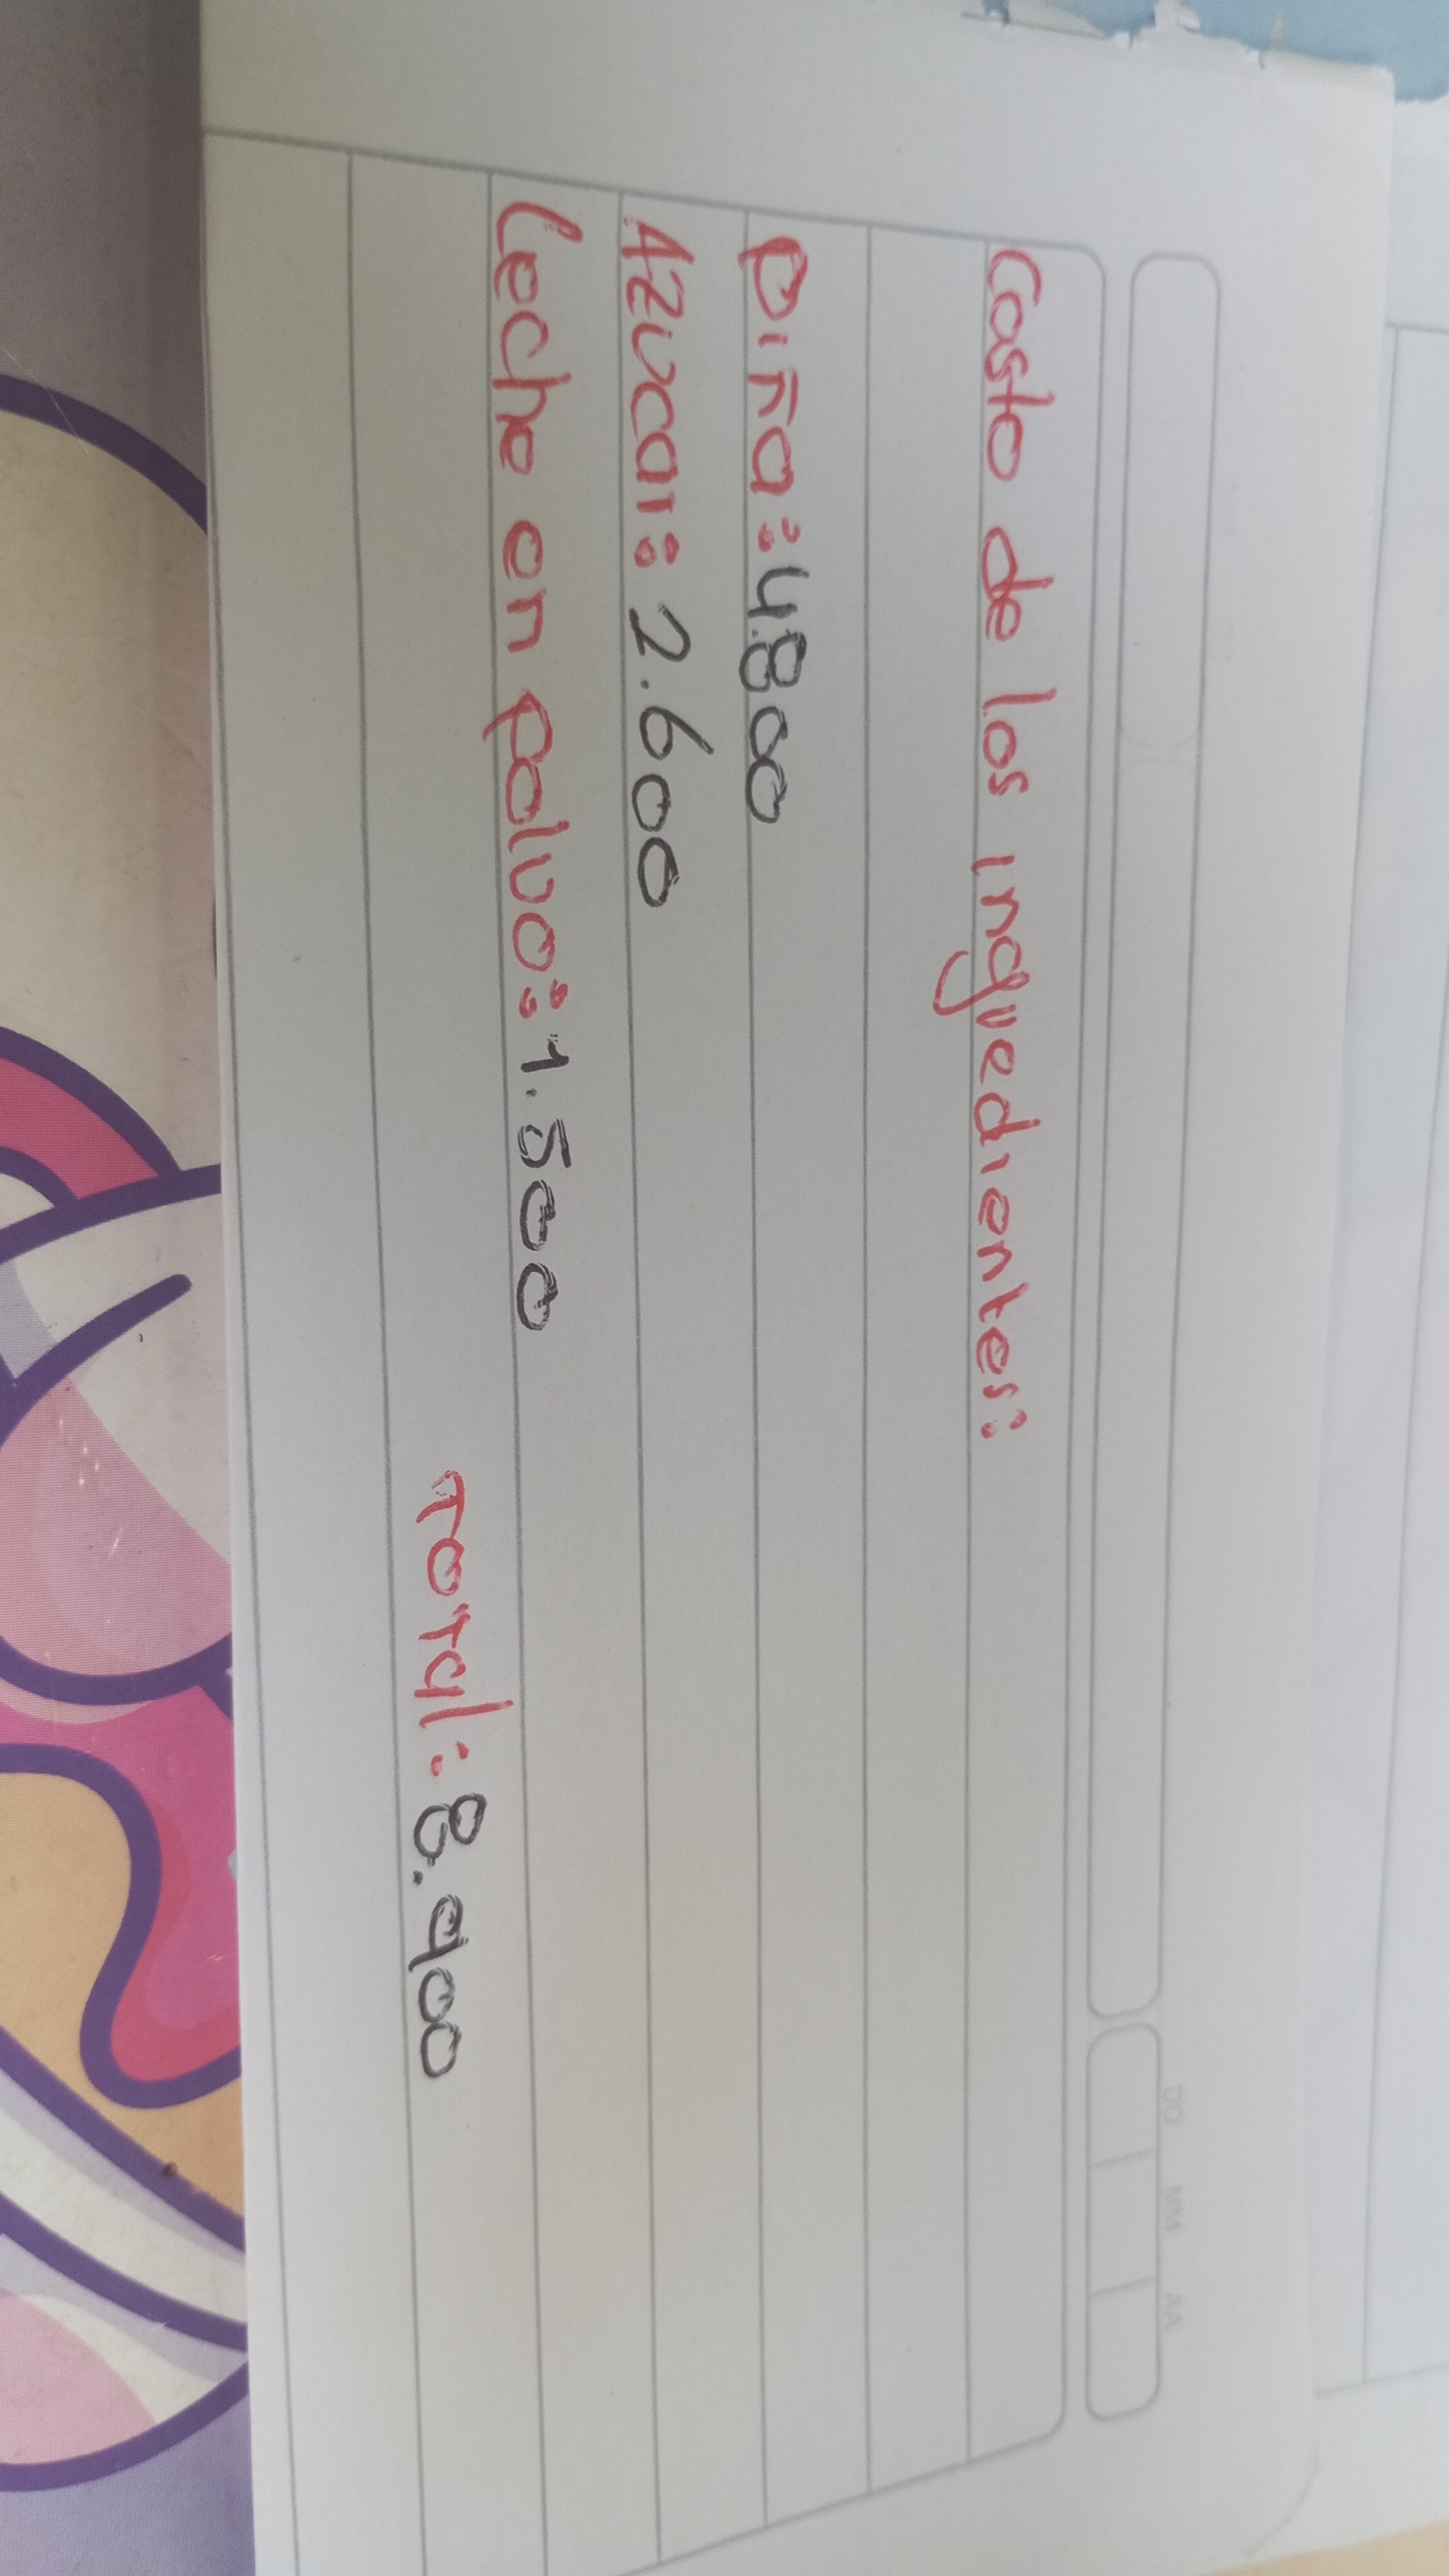 Costo de los ingredientes:
Piña: 4.800
Azucar: 2.600
Leche en polvo: 1.500
Total: 8.900
DD MM AA